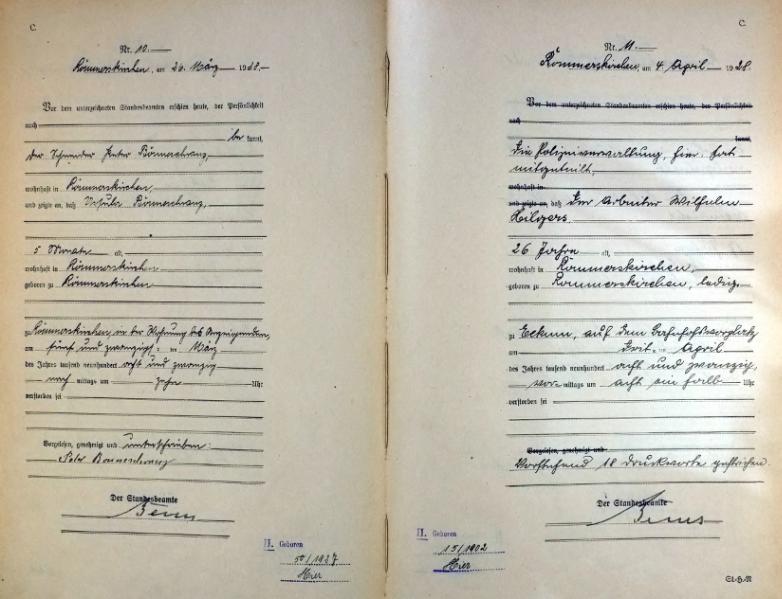 C.
Nr. 10.
Rommerskirchen, am 26. März 1928.
Vor dem unterzeichneten Standesbeamten erschien heute, der Persönlichkeit
nach
be kannt,
der Schneider Peter
wohnhaft in Rommerskirchen,
und zeigte an, daß
5 Monate alt,
wohnhaft in Rommerskirchen
geboren zu Rommerskirchen
zu Rommerskirchen, in der Wohnung des Anzeigenden,
am fünf und zwanzigsten März
des Jahres tausend neunhundert acht und zwanzig
nach mittags um zehn Uhr
verstorben sei
Vorgelesen, genehmigt und unterschrieben
Peter
Der Standesbeamte
II. Geboren
50/1927
Hier
C.
Nr. 11.
Rommerskirchen, am 4. April 1928.
Vor dem unterzeichneten Standesbeamten erschien heute, der Persönlichkeit
nach
kannt,
Die Polizeiverwaltung, hier, hat
mitgeteilt,
wohnhaft in
und zeigte an, daß der Arbeiter Wilhelm
Hilgers
26 Jahre alt,
wohnhaft in Rommerskirchen,
geboren zu Rommerskirchen, ledig,
zu Eckum, auf dem Bahnhofsvorplatz
am April
des Jahres tausend neunhundert acht und zwanzig,
vor mittags um acht ein halb Uhr
verstorben sei
Vorgelesen, genehmigt und
Vorstehend 18 Druckworte gestrichen.
Der Standesbeamte
II. Geboren
15/1902
Hier
St.H.A